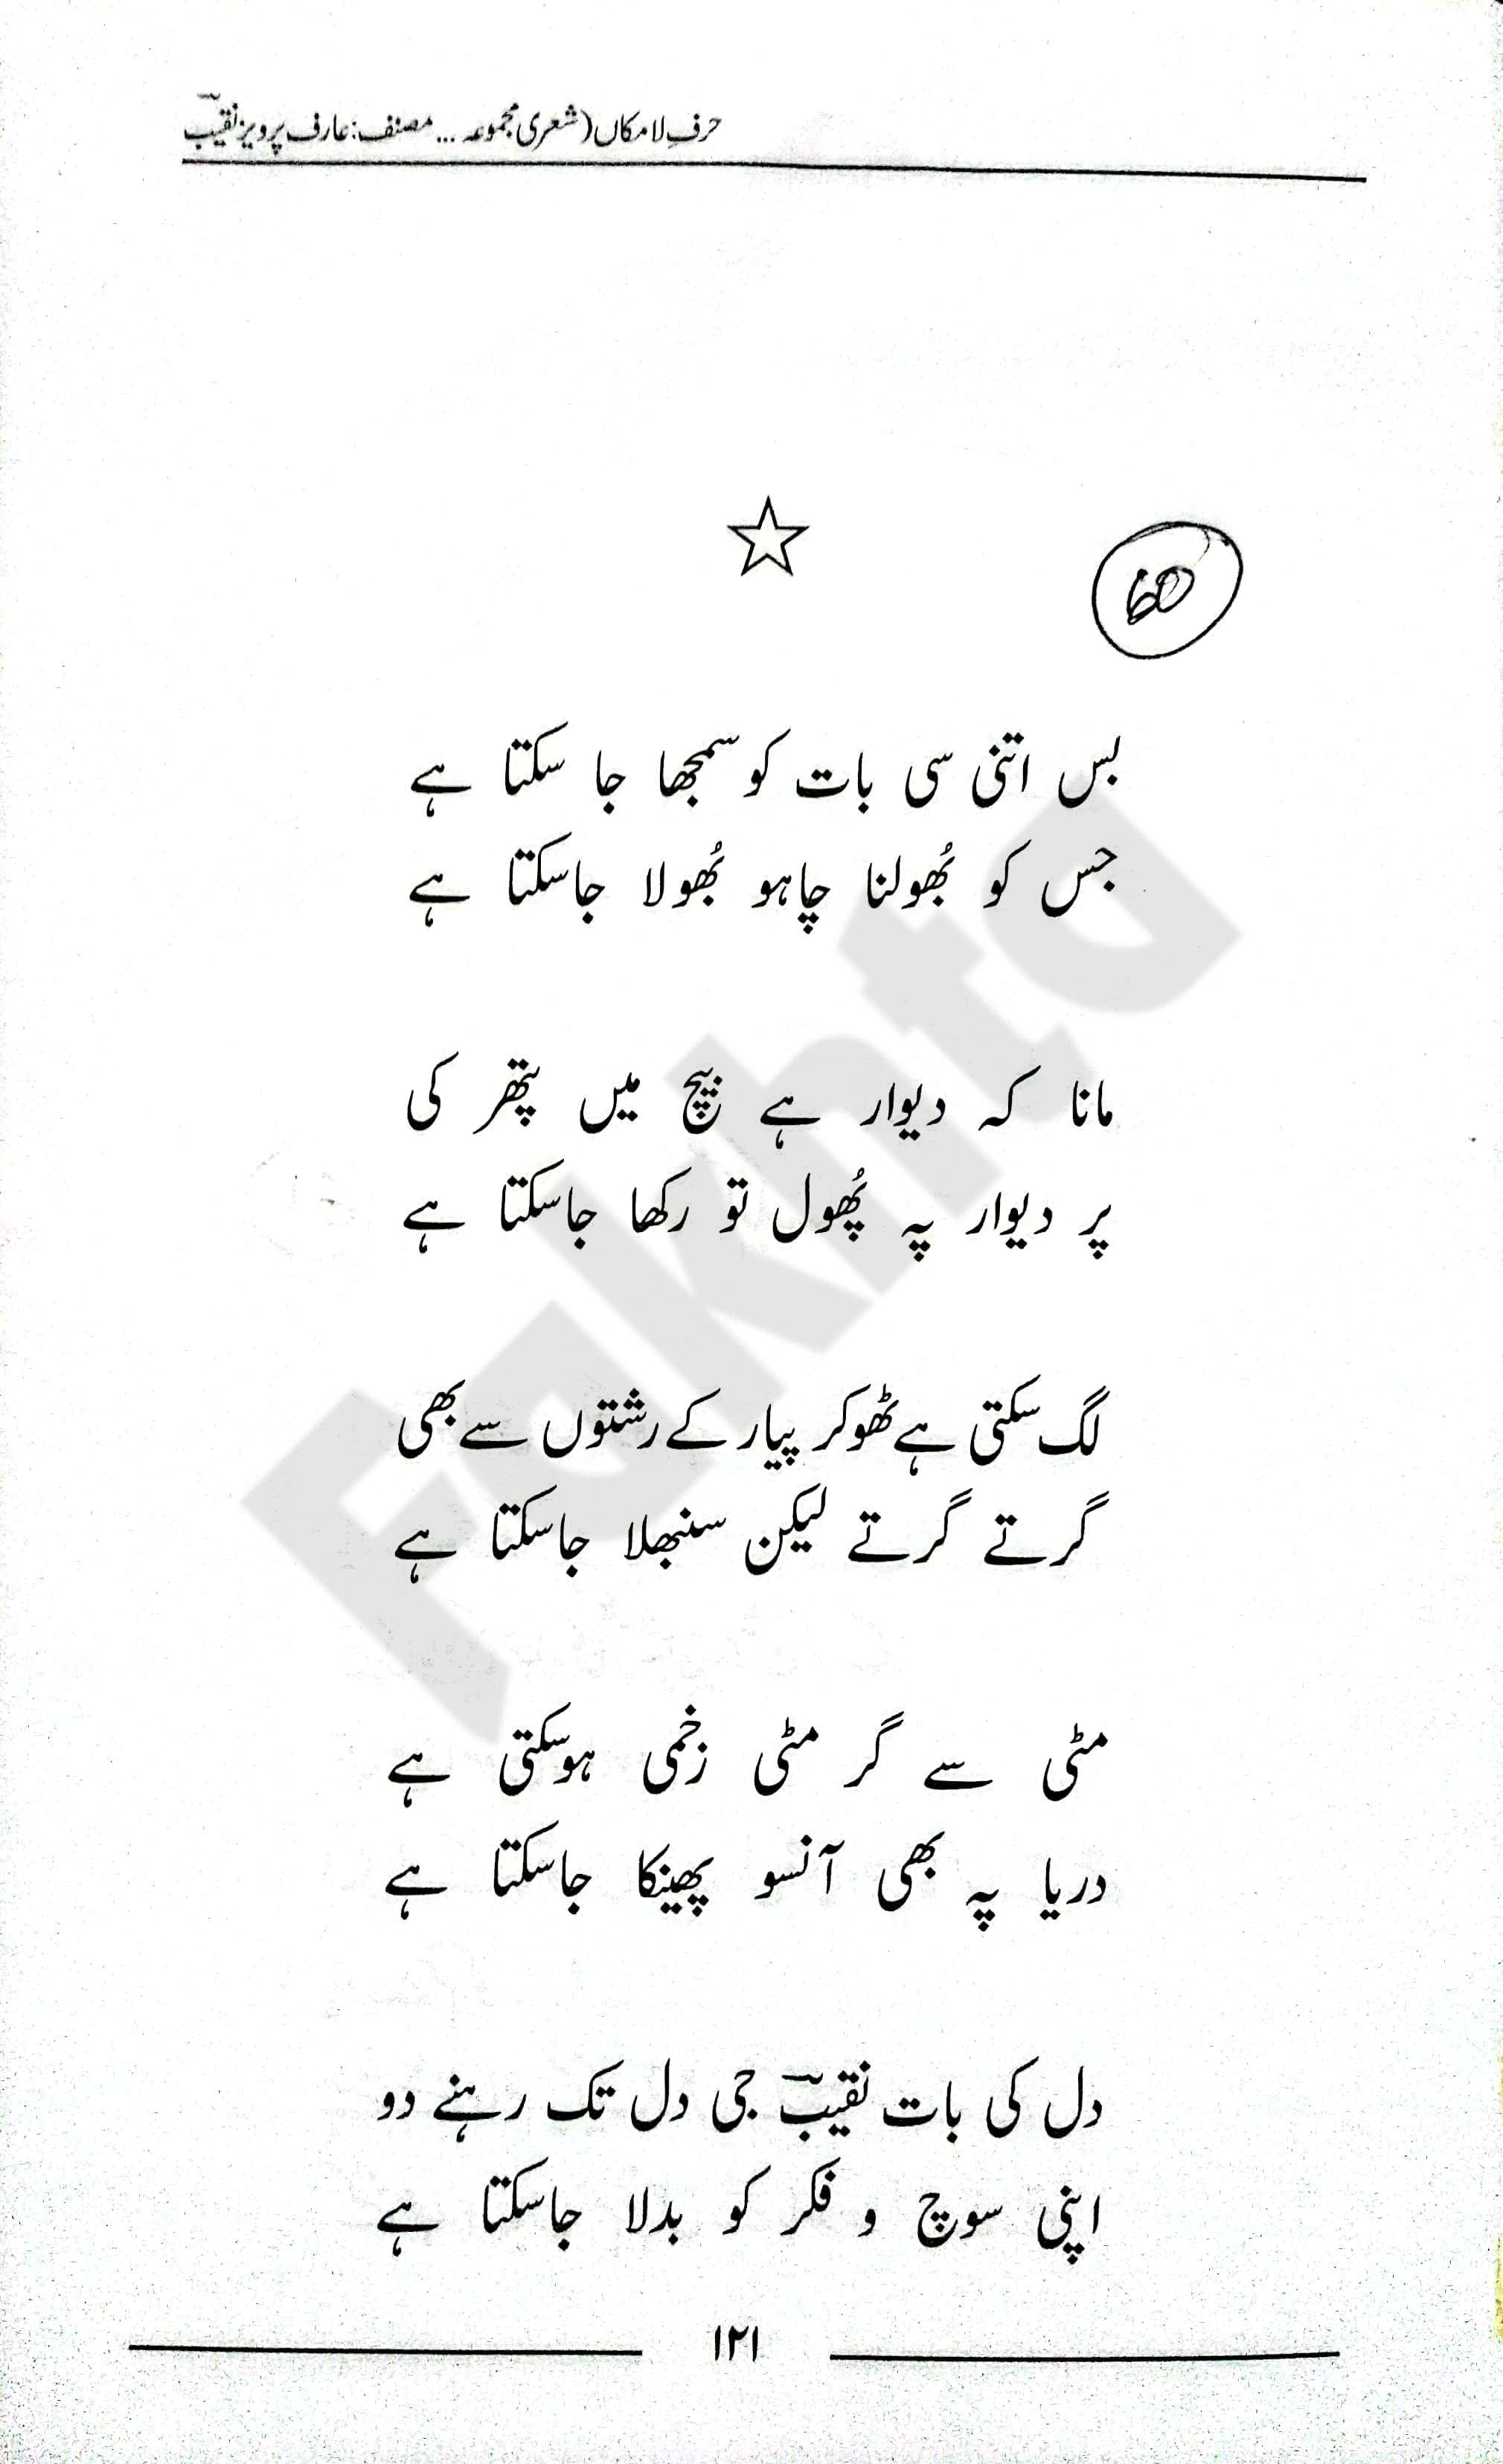 حرفِ لا مکاں (شعری مجموعہ ... مصنف: عارف پرویز نقیبؔ
☆
60
بس اتنی سی بات کو سمجھا جا سکتا ہے
جس کو بُھولنا چاہو بُھولا جاسکتا ہے
مانا کہ دیوار ہے بیچ میں پتھر کی
پر دیوار پہ پُھول تو رکھا جاسکتا ہے
لگ سکتی ہے ٹھوکر پیار کے رشتوں سے بھی
گرتے گرتے لیکن سنبھلا جاسکتا ہے
مٹی سے گر مٹی زخمی ہوسکتی ہے
دریا پہ بھی آنسو پھینکا جاسکتا ہے
دل کی بات نقیبؔ جی دل تک رہنے دو
اپنی سوچ و فکر کو بدلا جاسکتا ہے
۱۲۱
Fakhta